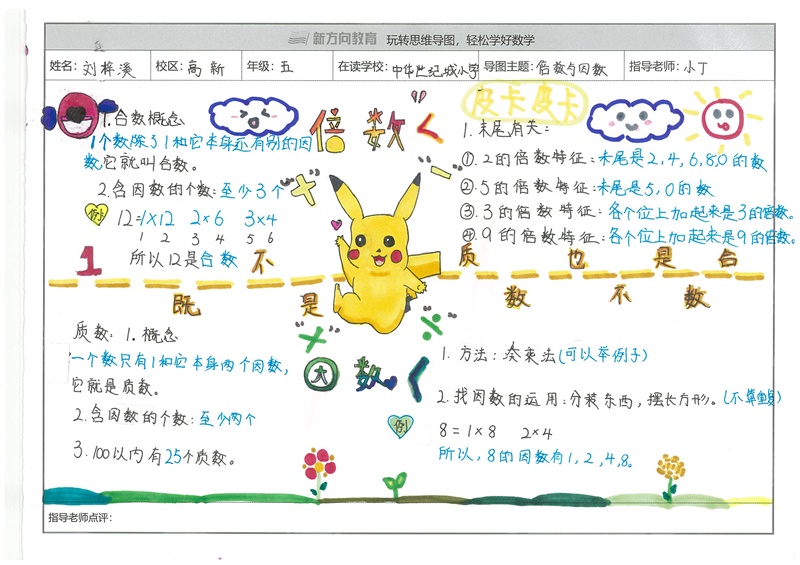 新方向教育 玩转思维导图，轻松学好数学
姓名：刘梓溪 校区：高新 年级：五 在读学校：中华世纪城小学 导图主题：倍数与因数 指导老师：小丁
1.合数概念
1个数除了1和它本身还有别的因
数，它就叫合数。
2.含因数的个数：至少3个
例
12=1×12 2×6 3×4
1 2 3 4 5 6
所以12是合数
倍数
皮卡皮卡
1.末尾有关：
①.2的倍数特征：末尾是2,4,6,8,0的数
②.5的倍数特征：末尾是5,0的数
③.3的倍数特征：各个位上加起来是3的倍数。
④.9的倍数特征：各个位上加起来是9的倍数。
1 既不是质数也不是合数
质数：1.概念
一个数只有1和它本身两个因数，
它就是质数。
2.含因数的个数：至少两个
3.100以内有25个质数。
因数
1.方法：乘法(可以举例子)
2.找因数的运用：分装东西，摆长方形。(不重复)
例
8=1×8 2×4
所以，8的因数有1,2,4,8。
指导老师点评：